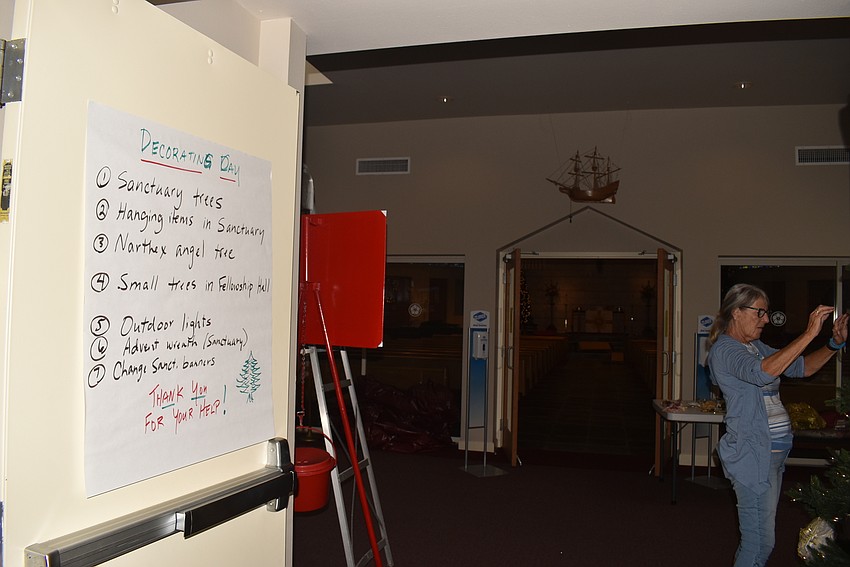 DECORATING DAY
① Sanctuary trees
② Hanging items in Sanctuary
③ Narthex angel tree
④ Small trees in Fellowship Hall
⑤ Outdoor lights
⑥ Advent wreath (Sanctuary)
⑦ Change Sanct. banners
THANK YOU
FOR YOUR HELP!